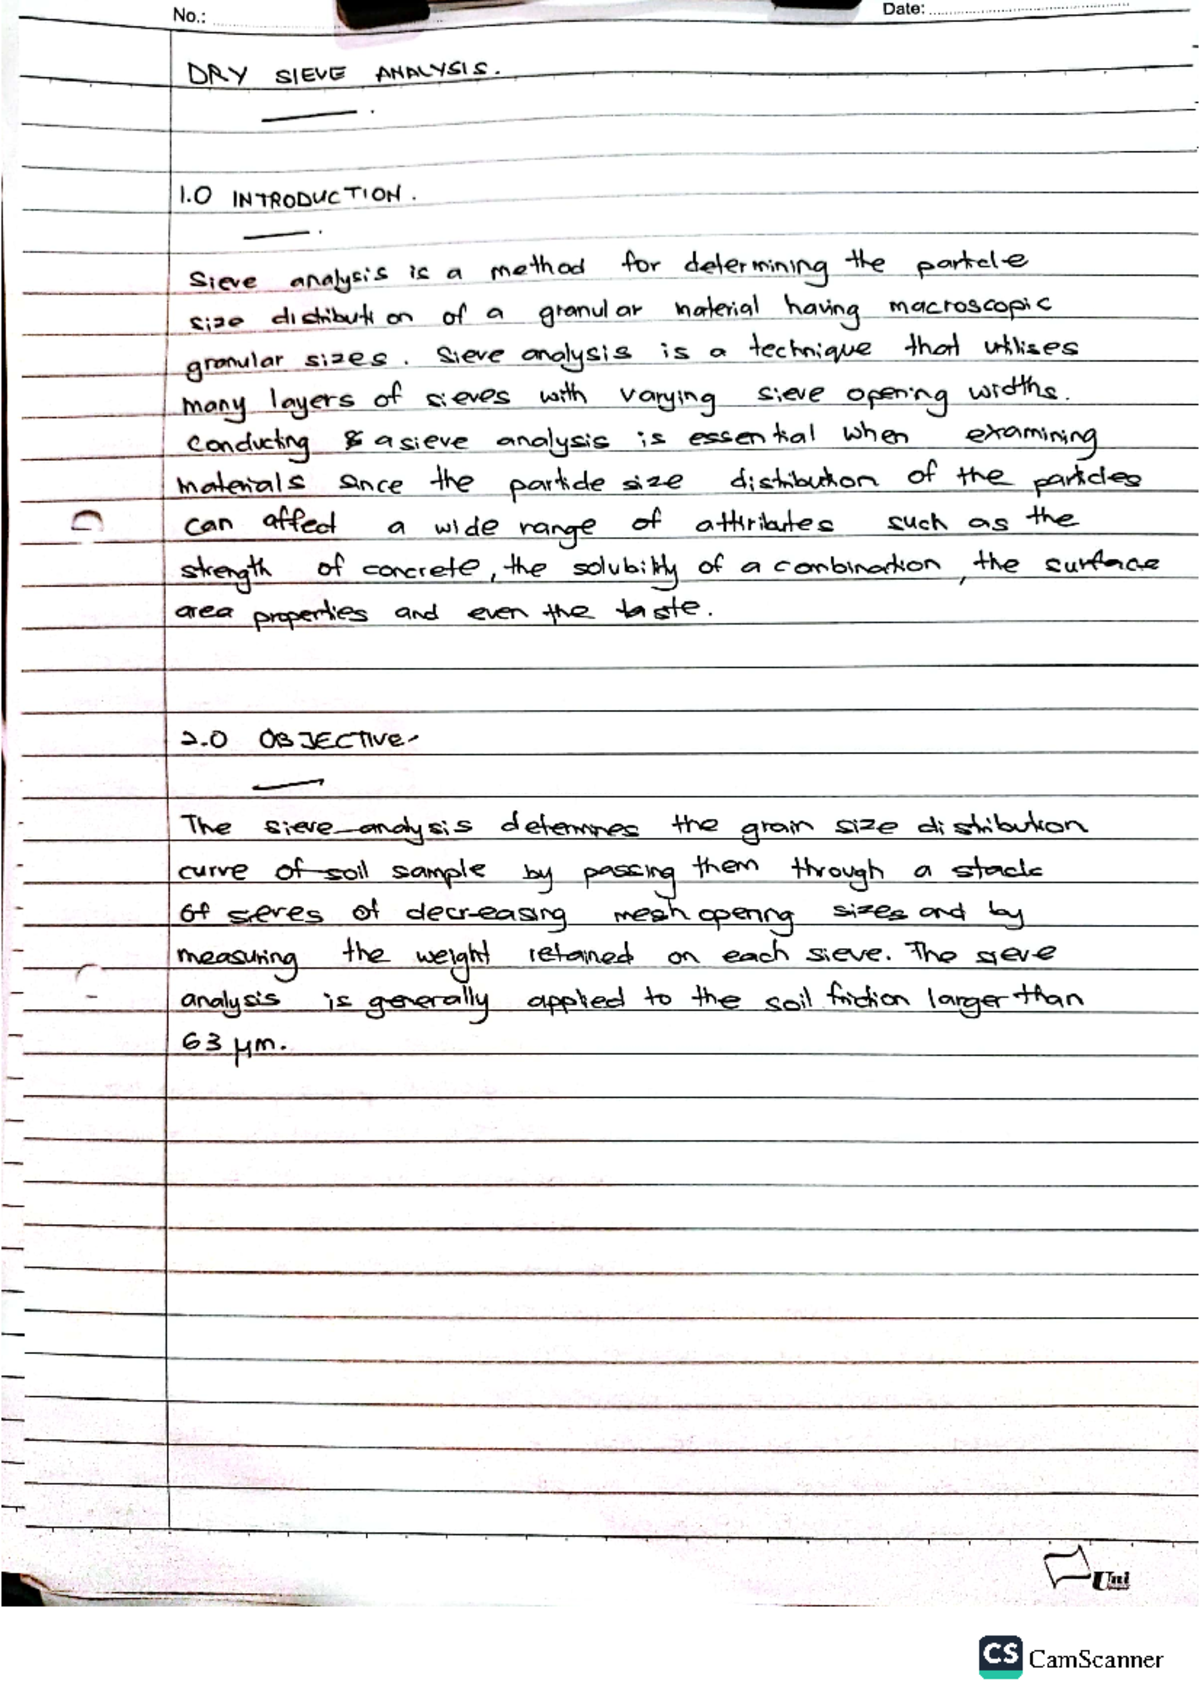 No.: Date:
DRY SIEVE ANALYSIS.
1.0 INTRODUCTION.
Sieve analysis is a method for determining the particle
size distribution of a granular material having macroscopic
granular sizes. Sieve analysis is a technique that utilises
many layers of sieves with varying sieve opening widths.
Conducting a sieve analysis is essential when examining
materials since the particle size distribution of the particles
can affect a wide range of attributes such as the
strength of concrete, the solubility of a combination, the surface
area properties and even the taste.
2.0 OBJECTIVE.
The sieve analysis determines the grain size distribution
curve of soil sample by passing them through a stack
of sieves of decreasing mesh opening sizes and by
measuring the weight retained on each sieve. The sieve
analysis is generally applied to the soil friction larger than
63 μm.
Uni
CS CamScanner